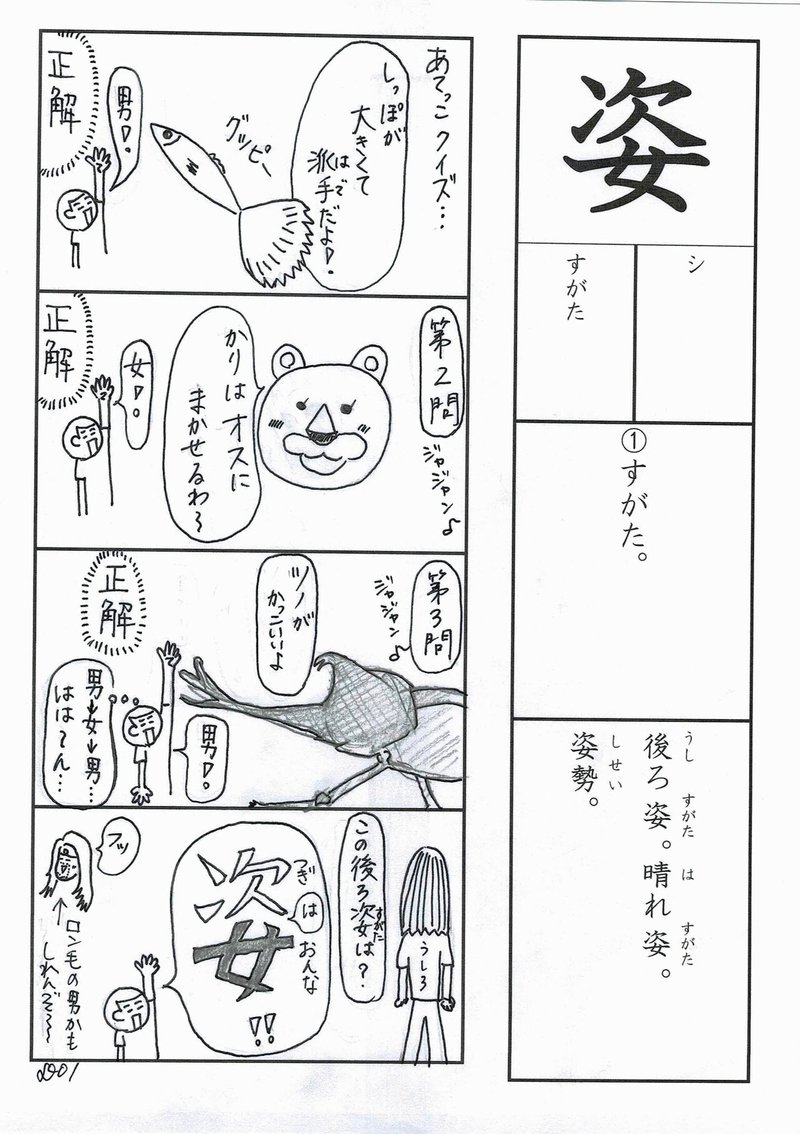 姿
シ
すがた
①すがた。
後ろ姿。晴れ姿。
うし すがた は すがた
姿勢。
しせい
あてっこクイズ…
しっぽが
大きくて
派手だよ!
はで
グッピー
男!。
正解
第2問
ジャジャン♪
かりはオスに
まかせるわ〜
女!。
正解
第3問
ジャジャン♪
ツノが
かっこいいよ
男!。
正解
男→女→男…
はは〜ん…
うしろ
この後ろ姿は?
すがた
つぎ
は
おんな
姿
!!
フッ
ロン毛の男かも
しれんぞ〜〜